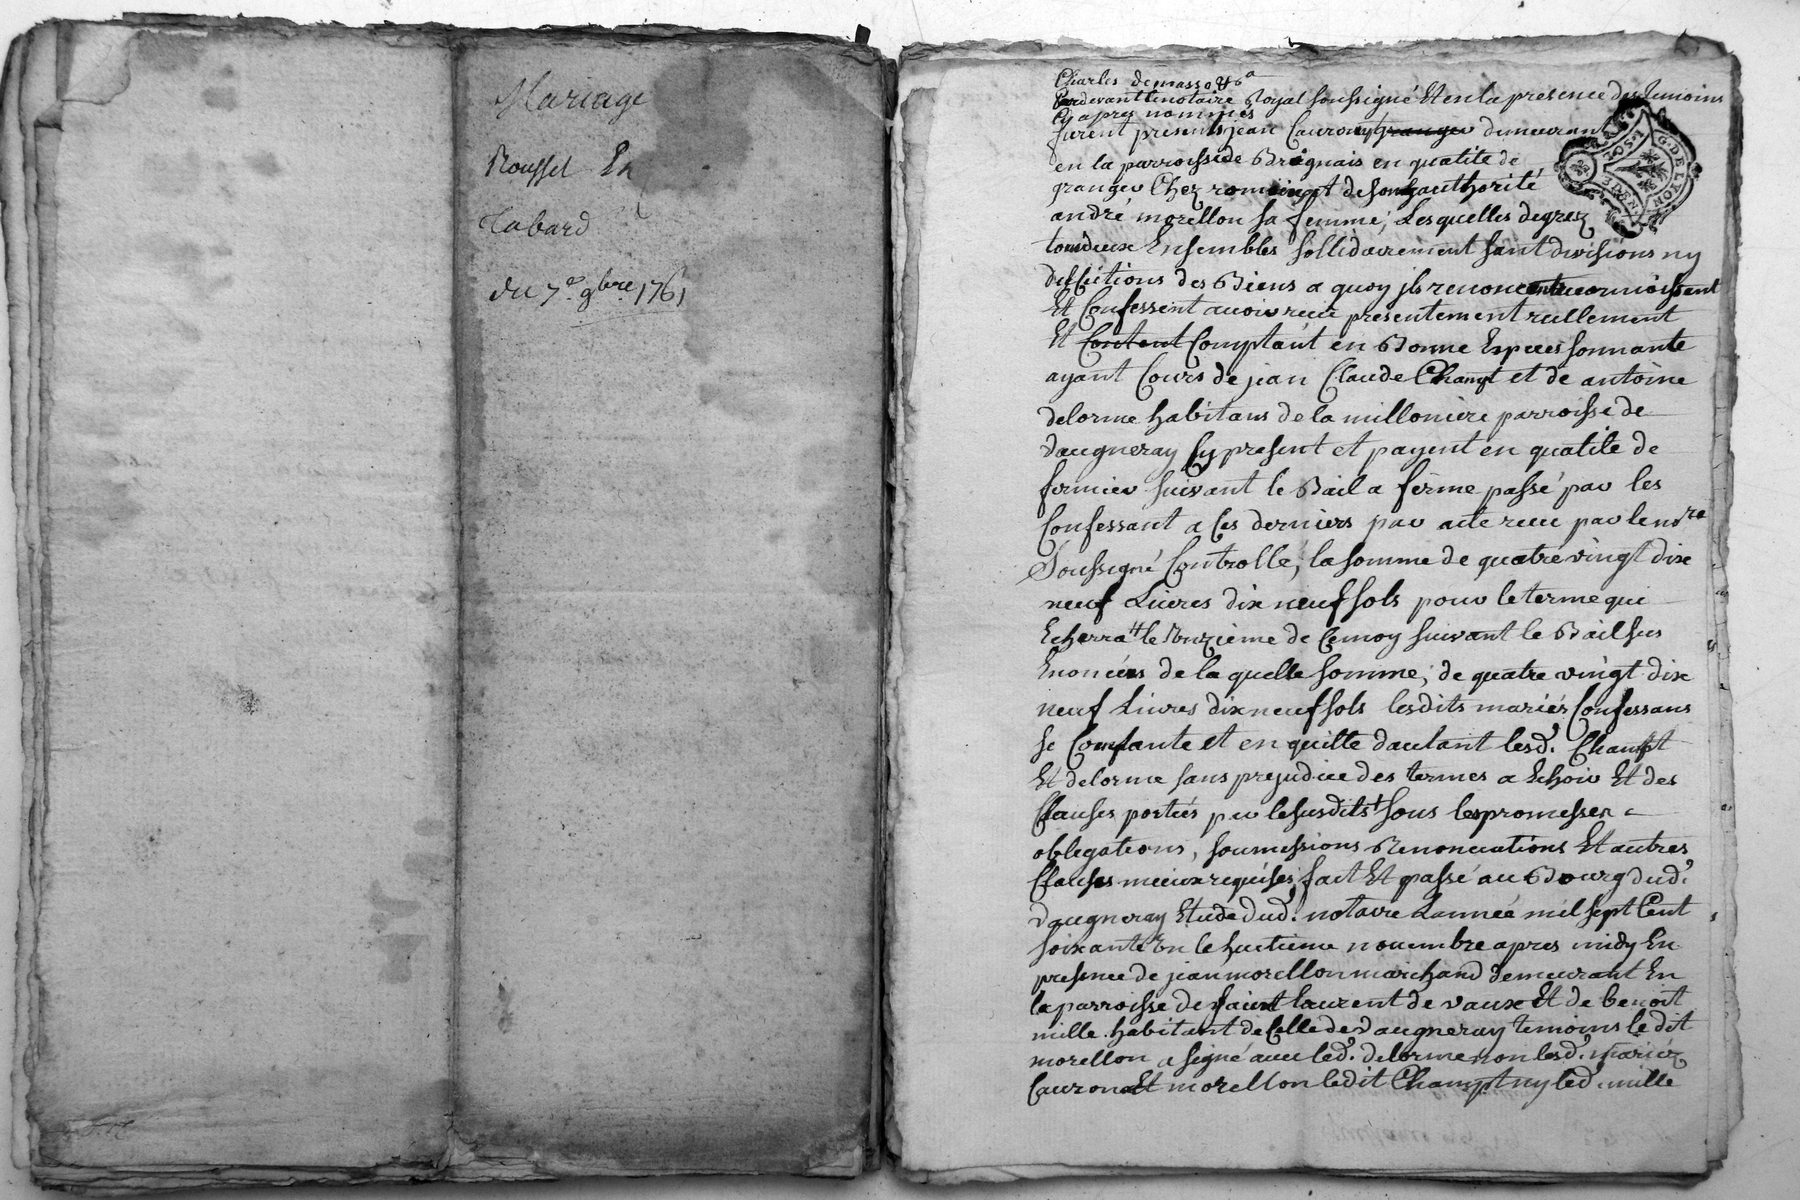 Mariage
Rousset Et
Tabard
du 7e. 9bre. 1761
Charles demasso
Pardevant le notaire Royal soussigné Et en la presence des temoins
Cy apres nommés
furent presents jean Cauron granger demeurant
en la parroisse de Brignais en qualité de
granger Chez et de son authorité
andré morellon sa femme; Lesquelles de grez
tous deux Ensembles sollidairement sant divisions ny
des Biens a quoy jls renoncent
Et Confessent avoir receu presentement reellement
Et Content Comptant en Bonne Especes sonnante
ayant Cours de jean Claude Champt et de antoine
delorme habitans de la milloniere parroisse de
vaugneray Cy present et payent en qualité de
fermier suivant le Bail a ferme passé par les
Confessant a Ces derniers par acte receu par le nre
Soussigné Controllé, la somme de quatre vingt dix
neuf Livres dix neuf sols pour le terme qui
Echerra le Onzieme de Cemoy suivant le Bail sus
Enoncées de la quelle somme, de quatre vingt dix
neuf Livres dix neuf sols lesdits mariés Confessans
se Contante et en quitte dautant lesd. Champt
Et delorme sans prejudice des termes a Echoir Et des
Clauses portées par le susdits sous les promesses
obligations, soumissions Renonciations Et autres
Clauses mieux requises, fait Et passé au Bourg dud.
vaugneray Etude dud. notaire Lannée mil sept Cent
soixante Un le huitieme novembre apres midy En
presence de jean morellon marchand demeurant En
la parroisse de saint laurent de vaux Et de benoit
mille habitant de Celle de vaugneray temoins le dit
morellon a signé avec led. delorme non lesd. mariéz
Cauron Et morellon ledit Champt ny led. mille
G. DE LYON